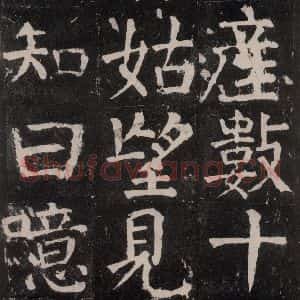 產數十
姑望見
知曰噫
Shufawang.cn